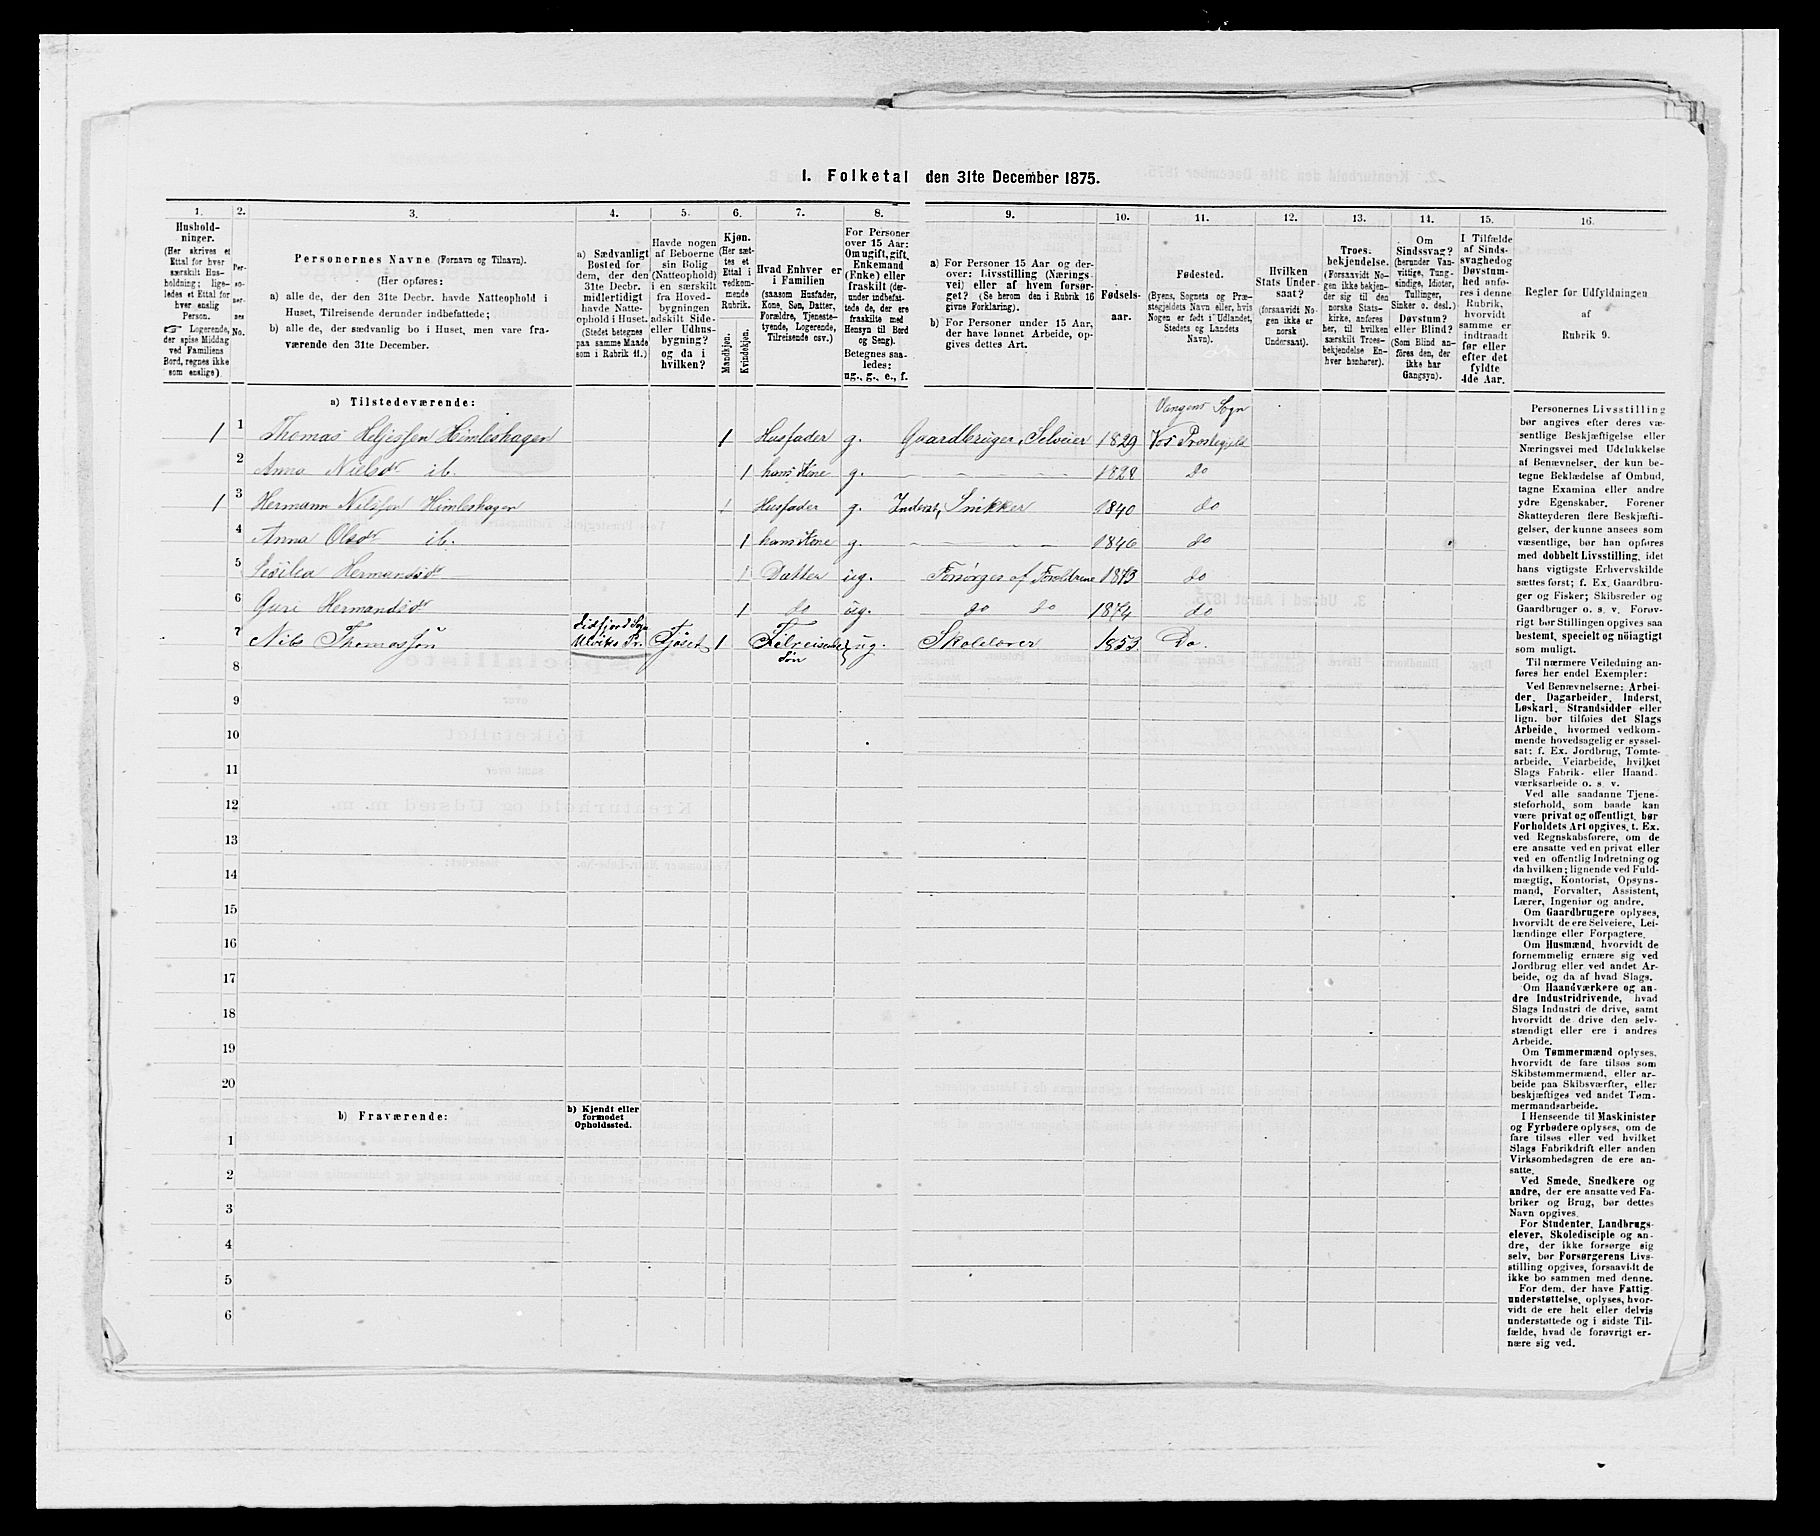 I. Folketal den 31te December 1875.
1. 2. 3. 4. 5. 6. 7. 8. 9. 10. 11. 12. 13. 14. 15. 16.
Hushold-
ninger.
(Her skrives et
Ettal for hver
særskilt Hus-
holdning; lige-
ledes et Ettal for
hver enslig
Person.
☞ Logerende,
der spise Middag
ved Familiens
Bord, regnes ikke
som enslige).
Per-
so-
ner-
nes
No.
Personernes Navne (Fornavn og Tilnavn).
(Her opføres:
a) alle de, der den 31te Decbr. havde Natteophold i
Huset, Tilreisende derunder indbefattede;
b) alle de, der sædvanlig bo i Huset, men vare fra-
værende den 31te December.
a) Sædvanligt
Bosted for
dem, der den
31te Decbr.
midlertidigt
havde Natte-
ophold i Huset.
(Stedet betegnes
paa samme Maade
som i Rubrik 11.)
Havde nogen
af Beboerne
sin Bolig
(Natteophold)
i en særskilt
fra Hoved-
bygningen
adskilt Side-
eller Udhus-
bygning?
og da i
hvilken?
Kjøn.
(Her sæt-
tes et
Ettal i
vedkom-
mende
Rubrik.
Mandkjøn.
Kvindekjøn.
Hvad Enhver er
i Familien
(saasom Husfader,
Kone, Søn, Datter,
Forældre, Tjeneste-
tyende, Logerende,
Tilreisende osv.)
For Personer
over 15 Aar:
Om ugift, gift,
Enkemand
(Enke) eller
fraskilt (der-
under indbefat-
tede de, der ere
fraskilte med
Hensyn til Bord
og Seng).
Betegnes saa-
ledes:
ug., g., e., f.
a) For Personer 15 Aar og der-
over: Livsstilling (Nærings-
vei) eller af hvem forsør-
get? (Se herom den i Rubrik 16
givne Forklaring).
b) For Personer under 15 Aar,
der have lønnet Arbeide, op-
gives dettes Art.
Fødsels-
aar.
Fødested.
(Byens, Sognets og Præ-
stegjeldets Navn eller, hvis
Nogen er født i Udlandet,
Stedets og Landets
Navn).
Hvilken
Stats Under-
saat?
(forsaavidt No-
gen ikke er
norsk
Undersaat).
Troes-
bekjendelse.
(Forsaavidt No-
gen ikke bekjen-
der sig til den
norske Stats-
kirke, anføres
her, til hvilken
særskilt Troes-
bekjendelse En-
hver henhører).
Om
Sindssvag?
(herunder Van-
vittige, Tung-
sindige, Idioter,
Tullinger,
Sinker o. desl.)
Døvstum?
eller Blind?
(Som Blind an-
føres den, der
ikke har
Gangsyn).
I Tilfælde
af Sinds-
svaghed og
Døvstum-
hed anfø-
res i denne
Rubrik,
hvorvidt
samme er
indtraadt
før eller
efter det
fyldte
4de Aar.
Regler for Udfyldningen
af
Rubrik 9.
a) Tilstedeværende:
Vangens Sogn
1 1 Thomas Heljessen Himleshagen 1 Husfader g. Gaardbruger, Selveier 1829 Vos Prostegjeld
2 Anna Nielsdr ib. 1 hans Kone g. 1828 do
1 3 Hermann Nilssen Himleshagen 1 Husfader g. Inderst, Snikker 1840 do
4 Anna Olsdr ib. 1 hans Kone g. 1846 do
5 Hermansdr 1 Datter ug. Forsørges af Foreldrene 1873 do
6 Guri Hermandsdr 1 do ug. do do 1874 do
7 Nils Thomassøn Eidfjord Sogn
Ulviks Pr. 1 Tilreisende
Søn ug. Skolelærer 1853 Do.
8
9
10
11
12
13
14
15
16
17
18
19
20
b) Fraværende:
b) Kjendt eller
formodet
Opholdssted.
1
2
3
4
5
6
Personernes Livsstilling
bør angives efter deres væ-
sentlige Beskjæftigelse eller
Næringsvei med Udelukkelse
af Benævnelser, der kun be-
tegne Beklædelse af Ombud,
tagne Examina eller andre
ydre Egenskaber. Forener
Skatteyderen flere Beskjæfti-
gelser, der kunne ansees som
væsentlige, bør han opføres
med dobbelt Livsstilling, idet
hans vigtigste Erhvervskilde
sættes først; f. Ex. Gaardbru-
ger og Fisker; Skibsreder og
Gaardbruger o. s. v. Forøv-
rigt bør Stillingen opgives saa
bestemt, specielt og nøiagtigt
som muligt.
Til nærmere Veiledning an-
føres her endel Exempler:
Ved Benævnelserne: Arbei-
der, Dagarbeider, Inderst,
Løskarl, Strandsidder eller
lign. bør tilføies det Slags
Arbeide, hvormed vedkom-
mende hovedsagelig er syssel-
sat; f. Ex. Jordbrug, Tomte-
arbeide, Veiarbeide, hvilket
Slags Fabrik- eller Haand-
værksarbeide o. s. v.
Ved alle saadanne Tjene-
steforhold, som baade kan
være privat og offentligt, bør
Forholdets Art opgives, t. Ex.
ved Regnskabsførere, om de
ere ansatte ved en privat eller
ved en offentlig Indretning og
da hvilken; lignende ved Fuld-
mægtig, Kontorist, Opsyns-
mand, Forvalter, Assistent,
Lærer, Ingeniør og andre.
Om Gaardbrugere oplyses,
hvorvidt de ere Selveiere, Lei-
lændinge eller Forpagtere.
Om Husmænd, hvorvidt de
fornemmelig ernære sig ved
Jordbrug eller ved andet Ar-
beide, og da af hvad Slags.
Om Haandværkere og an-
dre Industridrivende, hvad
Slags Industri de drive, samt
hvorvidt de drive den selv-
stændigt eller ere i andres
Arbeide.
Om Tømmermænd oplyses,
hvorvidt de fare tilsøs som
Skibstømmermænd, eller ar-
beide paa Skibsværfter, eller
beskjæftiges ved andet Tøm-
mermandsarbeide.
I Henseende til Maskinister
og Fyrbødere oplyses, om de
fare tilsøs eller ved hvilket
Slags Fabrikdrift eller anden
Virksomhedsgren de ere an-
satte.
Ved Smede, Snedkere og
andre, der ere ansatte ved Fa-
briker og Brug, bør dettes
Navn opgives.
For Studenter, Landbrugs-
elever, Skoledisciple og an-
dre, der ikke forsørge sig
selv, bør Forsørgerens Livs-
stilling opgives, forsaavidt de
ikke bo sammen med denne.
For dem, der have Fattig-
understøttelse, oplyses, hvor-
vidt de ere helt eller delvis
understøttede og i sidste Til-
fælde, hvad de forøvrigt er-
nære sig ved.